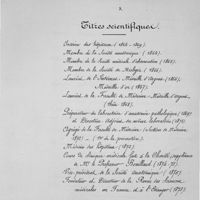 3.
Titres scientifiques.
Interne des hôpitaux (1865-1869).
Membre de la Société anatomique (1868).
Membre de la Société médicale d'observation (1868).
Membre de la Société de Biologie (1864).
Lauréat de l'Internat. Médaille d'argent (1868),
Médaille d'or (1869).
Lauréat de la Faculté de Médecine - Médaille d'argent
(thèse 1868).
Préparateur du laboratoire d'anatomie pathologique
et Directeur adjoint du même laboratoire
Agrégé de la Faculté de Médecine (Section de Médecine
1872) de la promotion).
Médecin des hôpitaux (1872).
Cours de clinique médicale fait à la Charité
de Mr le Professeur Bouillaud
Vice-président de la Société anatomique
et Directeur de la Revue des Sciences
médicales en France et à l'Étranger (1873).